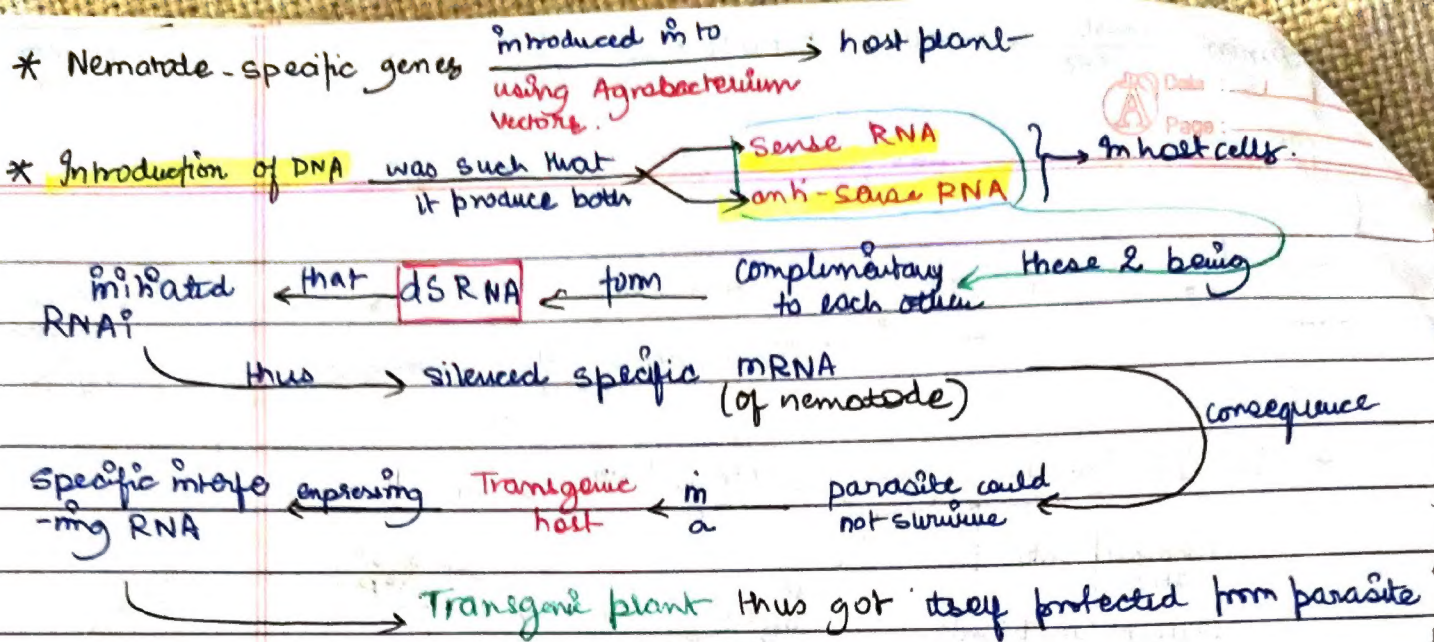 * Nematode-specific genes introduced into using Agrobacterium vectors. → host plant
Date :
Page :
* Introduction of DNA was such that it produce both sense RNA anti-sense RNA } → In host cells.
these 2 being
complimentary to each other
form
dSRNA
that
initiated RNAi
thus → silenced specific mRNA (of nematode)
consequence
parasite could not survive
in a
Transgenic host
expressing
specific interfe-ring RNA
Transgenic plant thus got itself protected from parasite